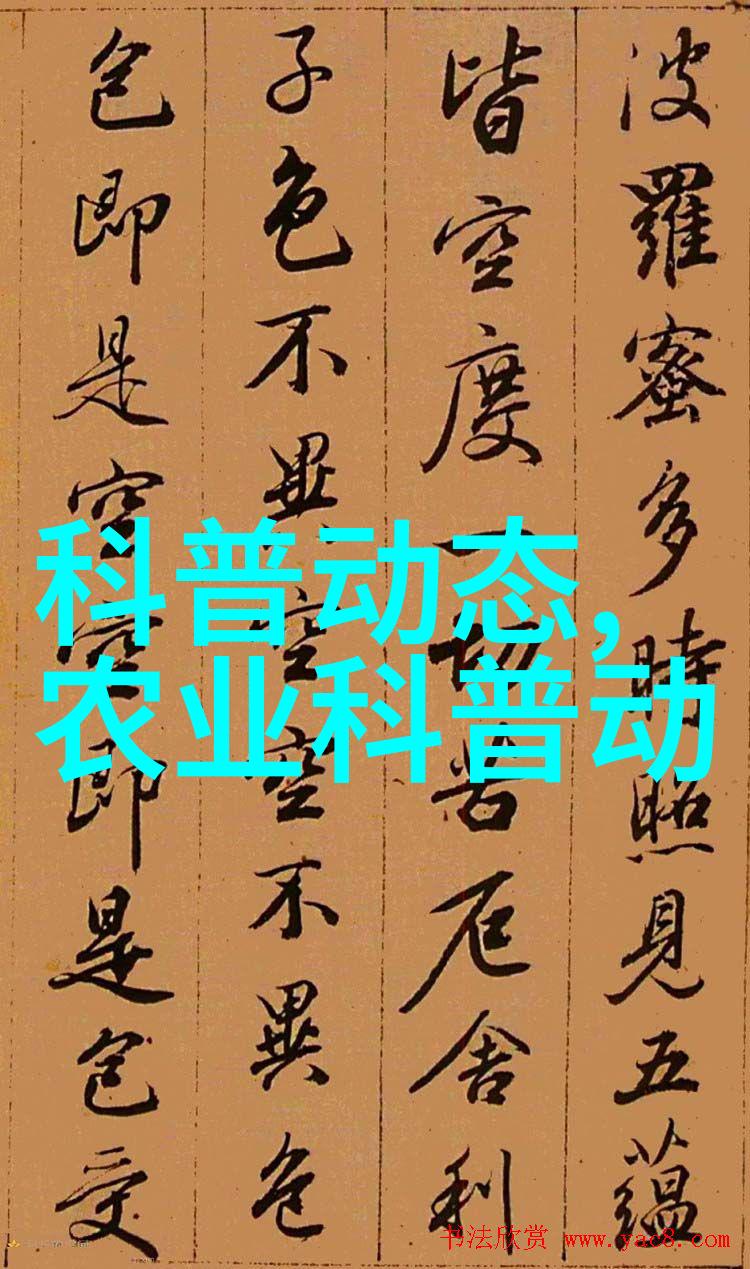 波羅蜜多時照見五蘊
皆空度一切苦厄舍利
子色不異空空不異色
色即是空空即是色受
科普动态,
农业科普动
书法欣赏 www.yac8.com